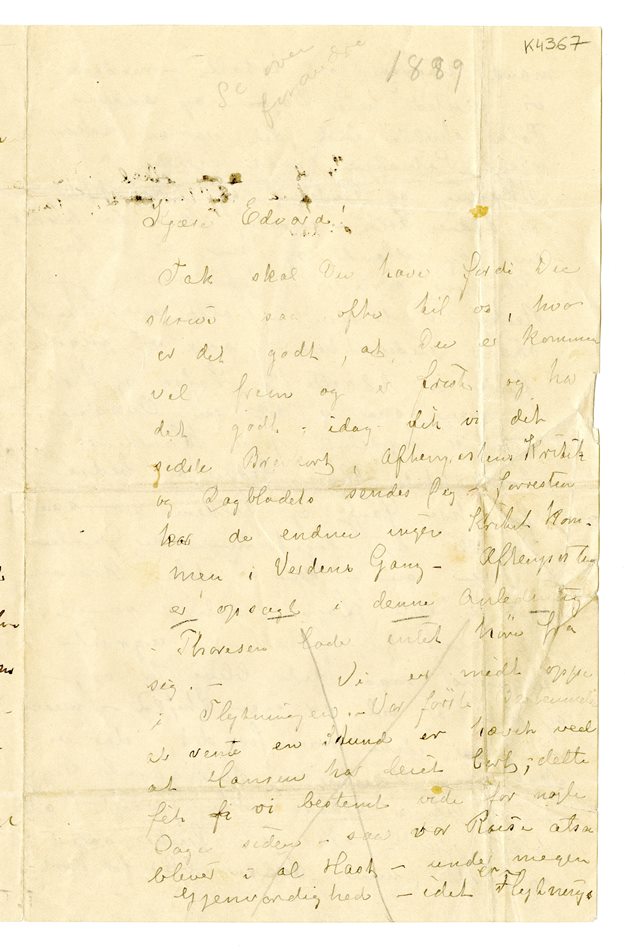 K4367
1889
Se over
Kjære Edvard!
Tak skal Du have fordi Du
skriver saa ofte til os, hvor
er det godt, at Du er kommen
vel frem og er frisk og ha
det godt - idag fik vi det
sidste Brevkort, Aftenpostens Kritik
og Dagbladets sendes Deg - forresten
har de endnu ingen Kritik kom-
men i Verdens Gang - Aftenposten
er opsagt i denne Anledning
- Thoresen lader intet höre fra
sig. - Vi er midt oppe
i Flytningen. - Vor förste
at vente en Stund er hævet ved
at Hansen har leiet bort; dette
fik vi bestemt vide for nogle
Dage siden - saa vor Reise altsaa
blever i al Hast - under megen
Gjenvordighed - idet er Flytnings